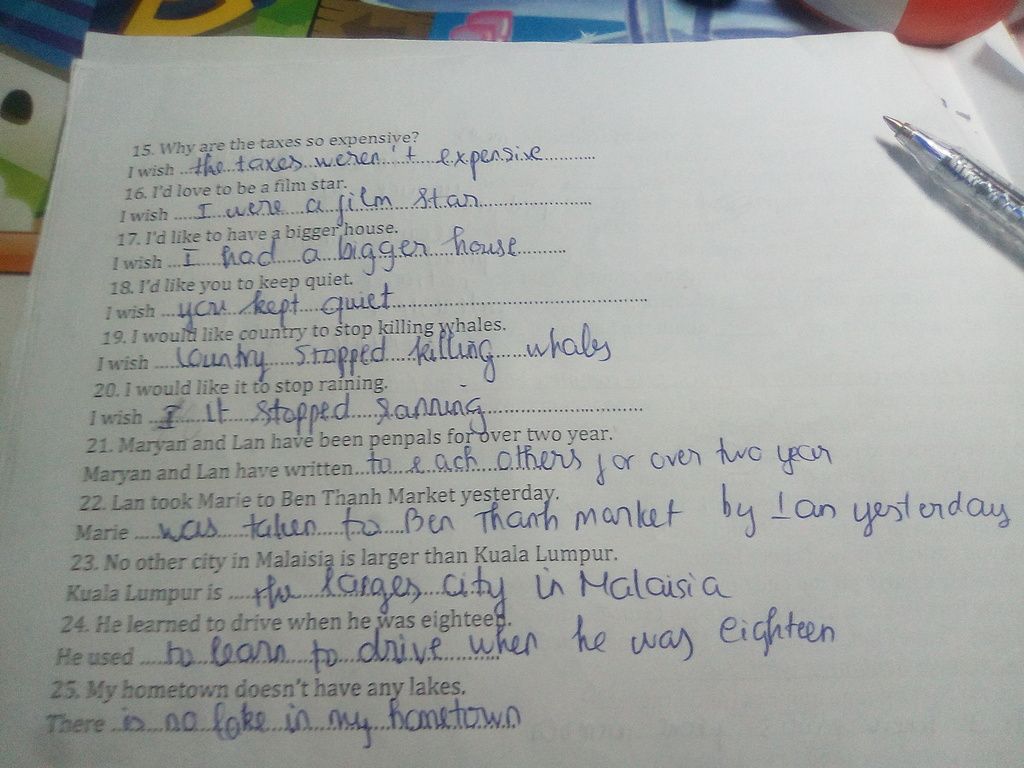 15. Why are the taxes so expensive?
I wish ...the taxes weren't expensive............
16. I'd love to be a film star.
I wish .....I were a film star............................
17. I'd like to have a bigger house.
I wish ...I had a bigger house............
18. I'd like you to keep quiet.
I wish ....you kept quiet..............................................
19. I would like country to stop killing whales.
I wish .....country stopped killing whales
20. I would like it to stop raining.
I wish ... it stopped ranning...............................
21. Maryan and Lan have been penpals for over two year.
Maryan and Lan have written...to each others for over two year
22. Lan took Marie to Ben Thanh Market yesterday.
Marie .....was taken to Ben Thanh market by Lan yesterday
23. No other city in Malaisia is larger than Kuala Lumpur.
Kuala Lumpur is .....the larges city in Malaisia
24. He learned to drive when he was eighteen.
He used ....to learn to drive when he was eighteen
25. My hometown doesn't have any lakes.
There ..is no lake in my hometown